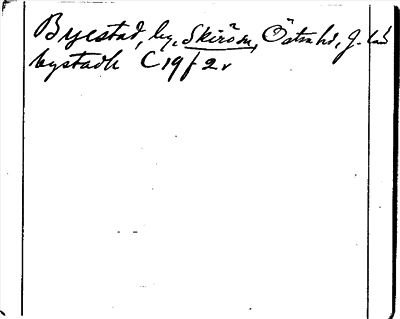 Byestad, by, Skirö sn, Östra hd, J. län
bystadh C 19 f 2 v